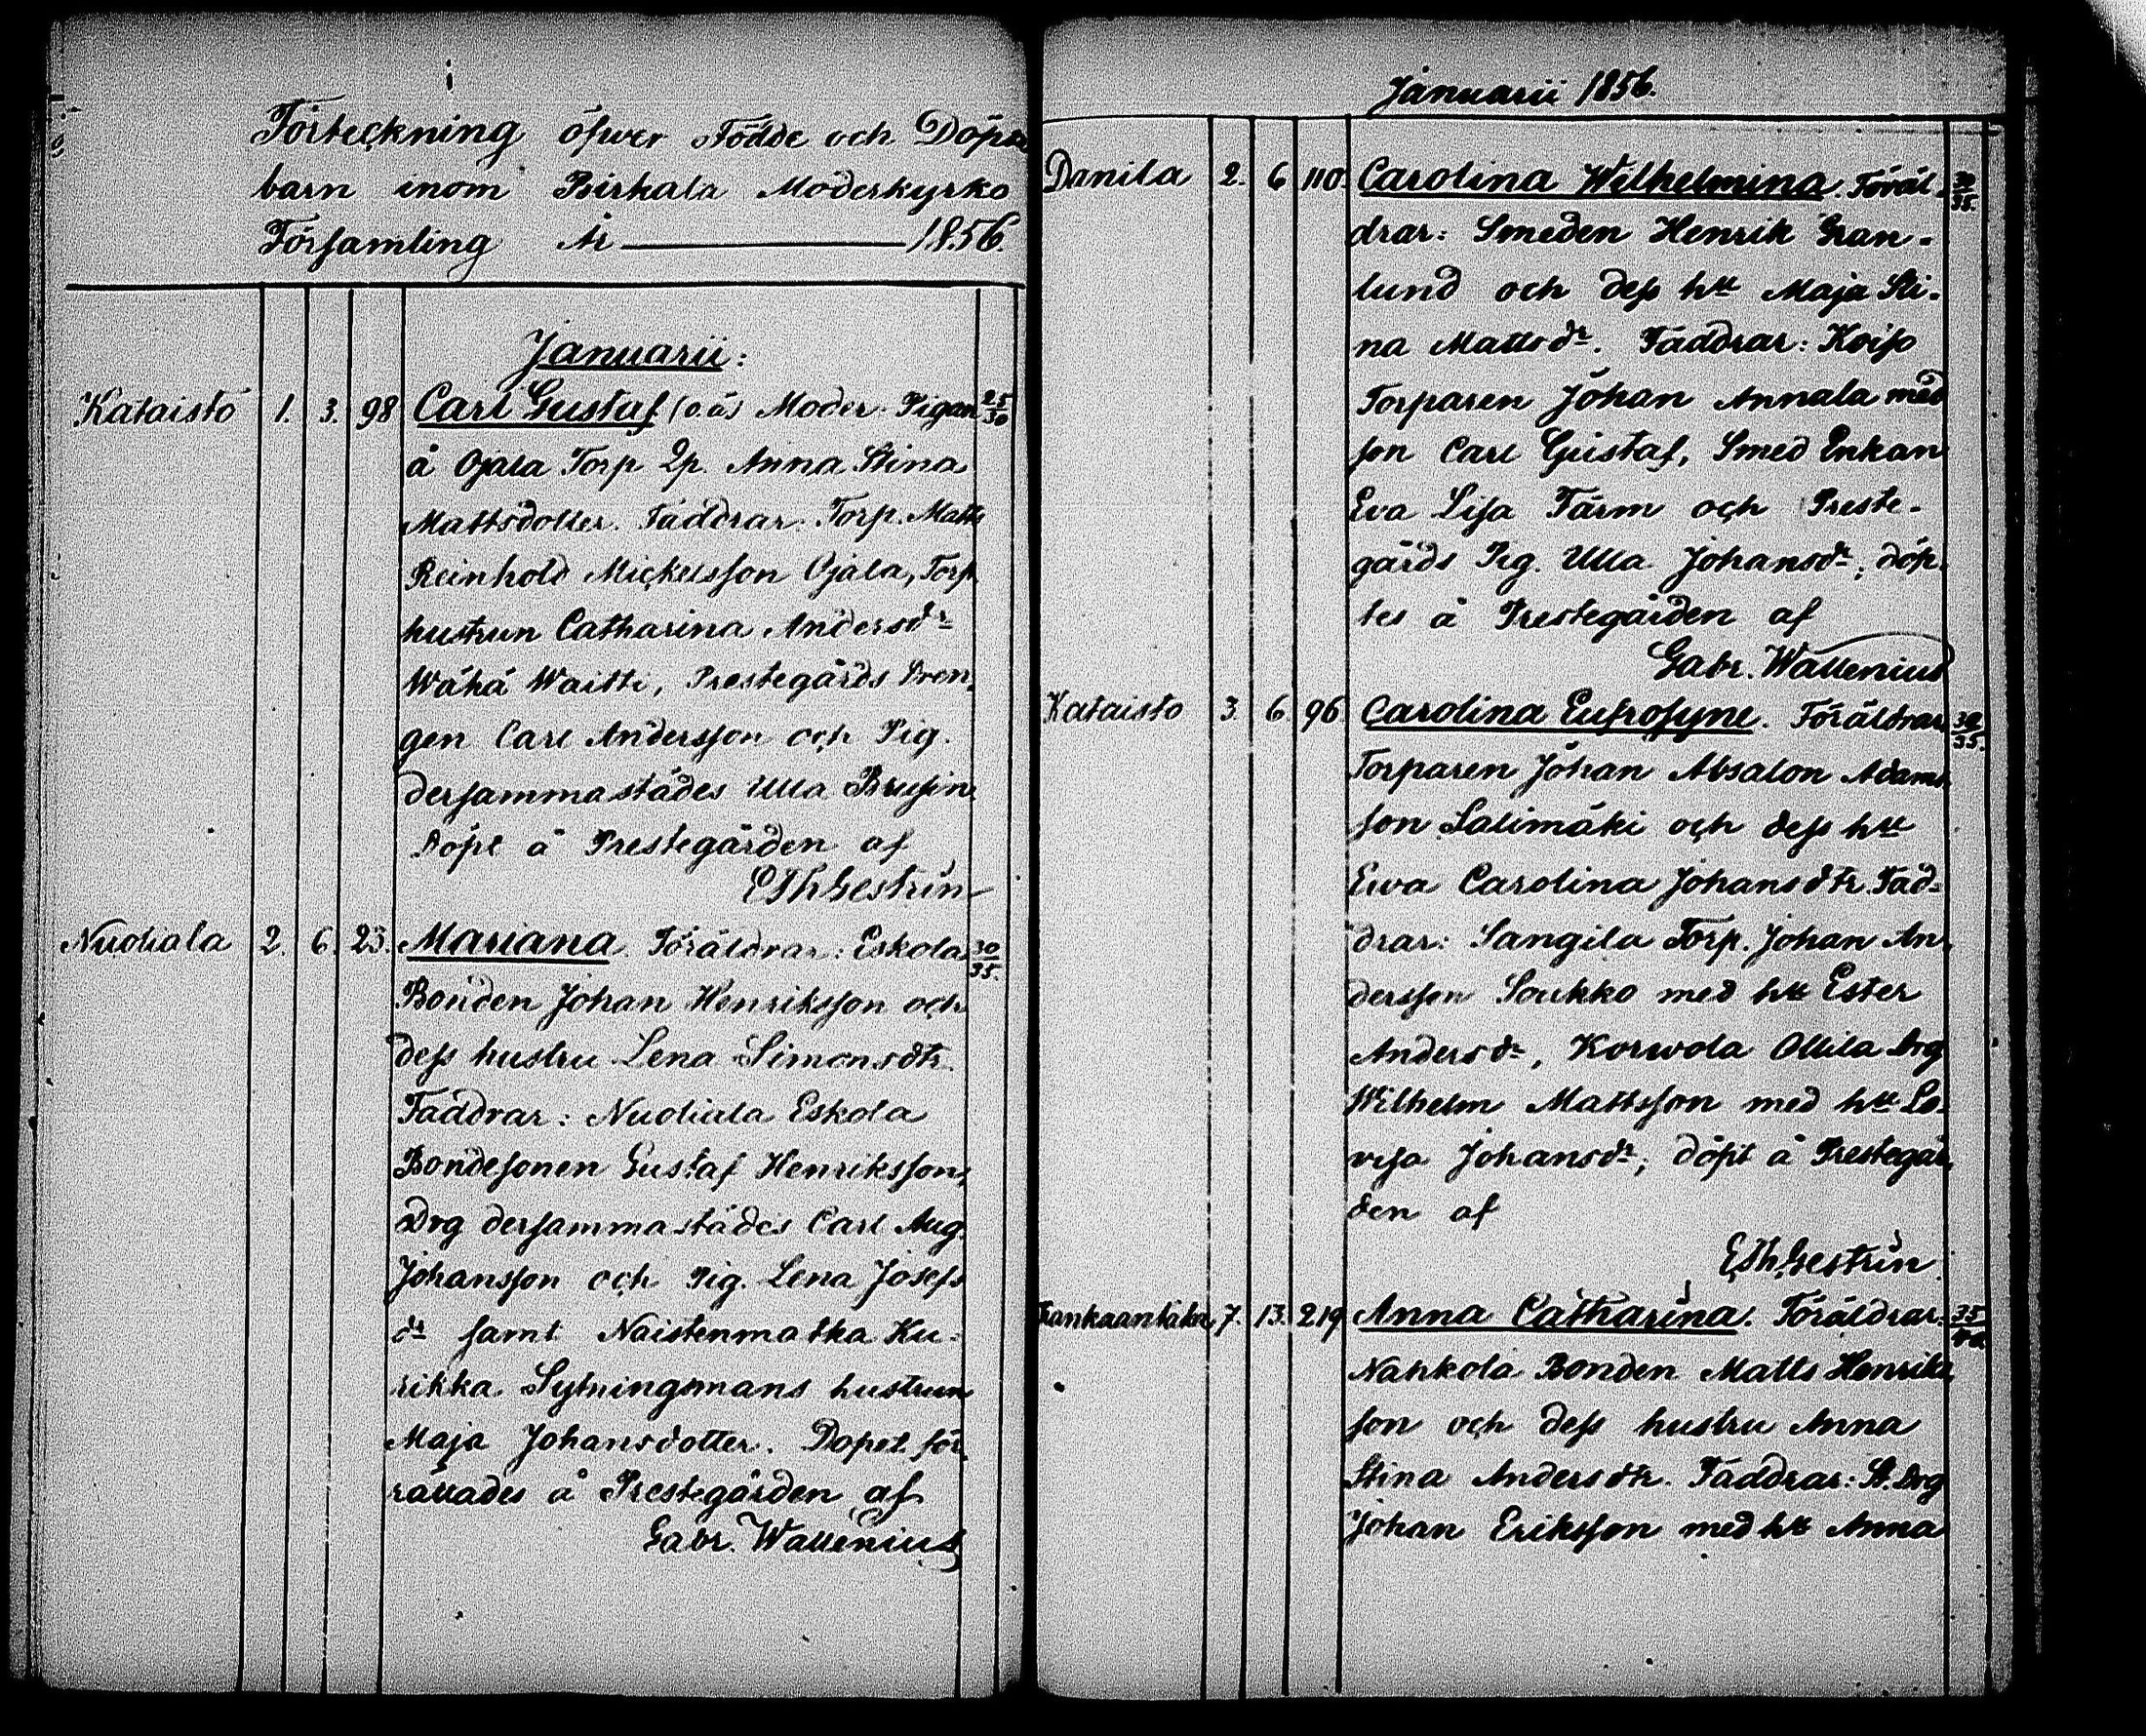 Förteckning öfwer Födde och Döpta
barn inom Birkala Moderkyrko
Församling År 1856.
Januarii:
Kataisto 1. 3. 98 Carl Gustaf (o.ä) Moder: Pigan 25/30
å Ojala Torp Ip. Anna Stina
Mattsdotter. Faddrar: Torp. Matts
Reinhold Mickelsson Ojala, Torp
hustrun Catharina Andersdr
Wähä Waitti, Prestegårds Dren,
gen Carl Andersson och Pig.
dersammastädes Ulla Brusin.
Döpt å Prestegården af
E Th Gestrin
Nuoliala 2. 6. 23. Mariana. Föräldrar: Eskola 30/35.
Bonden Johan Henriksson och
dess hustru Lena Simonsdtr.
Faddrar: Nuoliala Eskola
Bondesonen Gustaf Henriksson,
Drg dersammastädes Carl Aug.
Johansson och Pig. Lena Josefs
dr samt Naistenmatka Ku-
rikka Sytningsmans hustrun
Maja Johansdotter. Dopet för
rättades å Prestegården af
Gabr. Wallenius
Januarii 1856.
Danila 2. 6 110. Carolina Wilhelmina. Föräl- 30/35.
drar: Smeden Henrik Gran-
lund och dess htr Maja Sti-
na Mattsdr. Faddrar: Koiso
Torparen Johan Annala med
son Carl Gustaf, Smed Enkan
Eva Lisa Färm och Preste-
gårds Pig. Ulla Johansdr; döp
tes å Prestegården af
Gabr. Wallenius
Kataisto 3. 6. 96 Carolina Eufrosyne. Föräldrar 30/35.
Torparen Johan Absalon Adams
son Salimäki och dess htr
Ewa Carolina Johansdtr. Fad-
drar: Sangila Torp. Johan An,
dersson Soukko med htr Ester
Andersdr, Korwola Ollila Drg
Wilhelm Mattsson med htr Lo-
visa Johansdr; döpt å Prestegår,
den af
E Th Gestrin.
Frankaantaka 7. 13. 219 Anna Catharina. Föräldrar: 35/40
Nahkola Bonden Matts Henriks
son och dess hustru Anna
Stina Andersdtr. Faddrar: St. Drg
Johan Eriksson med htr Anna